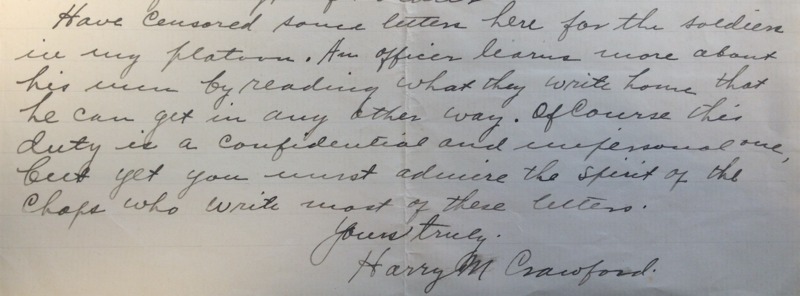 Have censored some letters here for the soldiers
in my platoon. An officer learns more about
his men by reading what they write home that
he can get in any other way. Of Course this
duty is a confidential and impersonal one,
but yet you must admire the spirit of the
Chaps who write most of these letters.
Yours truly.
Harry M Crawford.